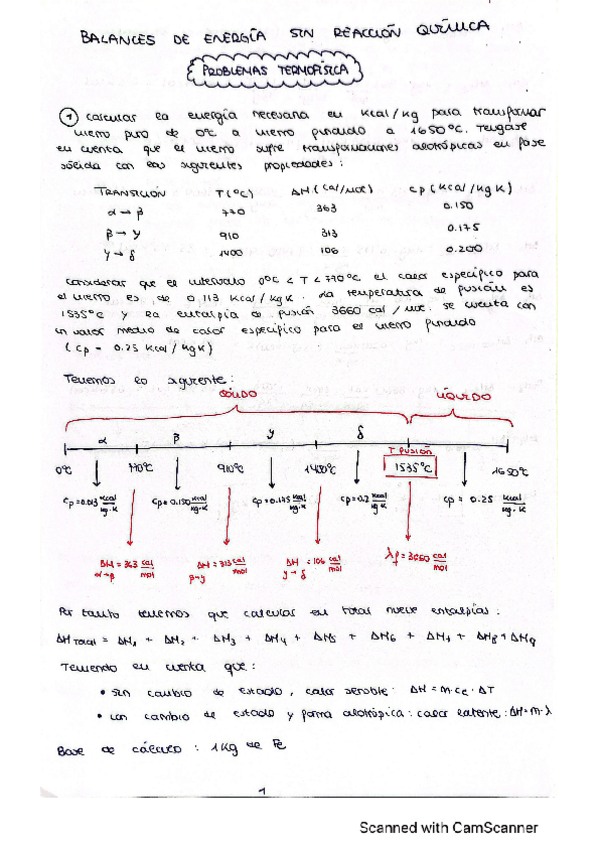 BALANCES DE ENERGÍA SIN REACCIÓN QUÍMICA
PROBLEMAS TERMOFÍSICA
① Calcular la energía necesaria en Kcal/kg para transformar
hierro puro de 0ºC a hierro fundido a 1650ºC. Téngase
en cuenta que el hierro sufre transformaciones alotrópicas en fase
sólida con las siguientes propiedades:
TRANSICIÓN T(ºC) ΔH (cal/mol) Cp (Kcal/kg K)
α → β 770 363 0.150
β → γ 910 313 0.175
γ → δ 1400 106 0.200
Considerar que el intervalo 0ºC < T < 770ºC el calor específico para
el hierro es de 0,113 Kcal/kgK. La temperatura de fusión es
1535ºC y la entalpía de fusión 3660 cal/mol. Se cuenta con
un valor medio de calor específico para el hierro fundido
(Cp = 0.25 Kcal/kgK)
Tenemos lo siguiente:
SÓLIDO LÍQUIDO
α β γ δ T fusión
0ºC 770ºC 910ºC 1400ºC 1535ºC 1650ºC
Cp=0.013 Kcal/kg·K Cp=0.150 Kcal/kg·K Cp=0.175 Kcal/kg·K Cp=0.2 Kcal/kg·K Cp = 0.25 Kcal/kg·K
ΔH = 363 cal/mol ΔH = 313 cal/mol ΔH = 106 cal/mol λf = 3660 cal/mol
α→β β→γ γ→δ
Por tanto tenemos que calcular en total nueve entalpías:
ΔH Total = ΔH1 + ΔH2 + ΔH3 + ΔH4 + ΔH5 + ΔH6 + ΔH7 + ΔH8 + ΔH9
Teniendo en cuenta que:
• Sin cambio de estado, calor sensible: ΔH = m·Ce·ΔT
• con cambio de estado y forma alotrópica: calor latente: ΔH = m·λ
Base de cálculo: 1Kg de Fe
1
Scanned with CamScanner